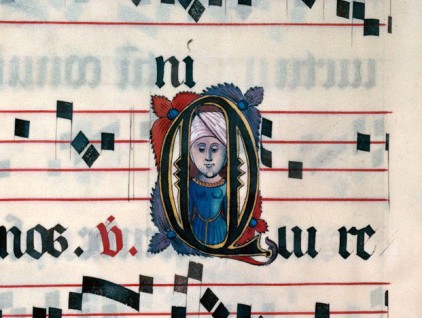 ni
nos. V. Qui re